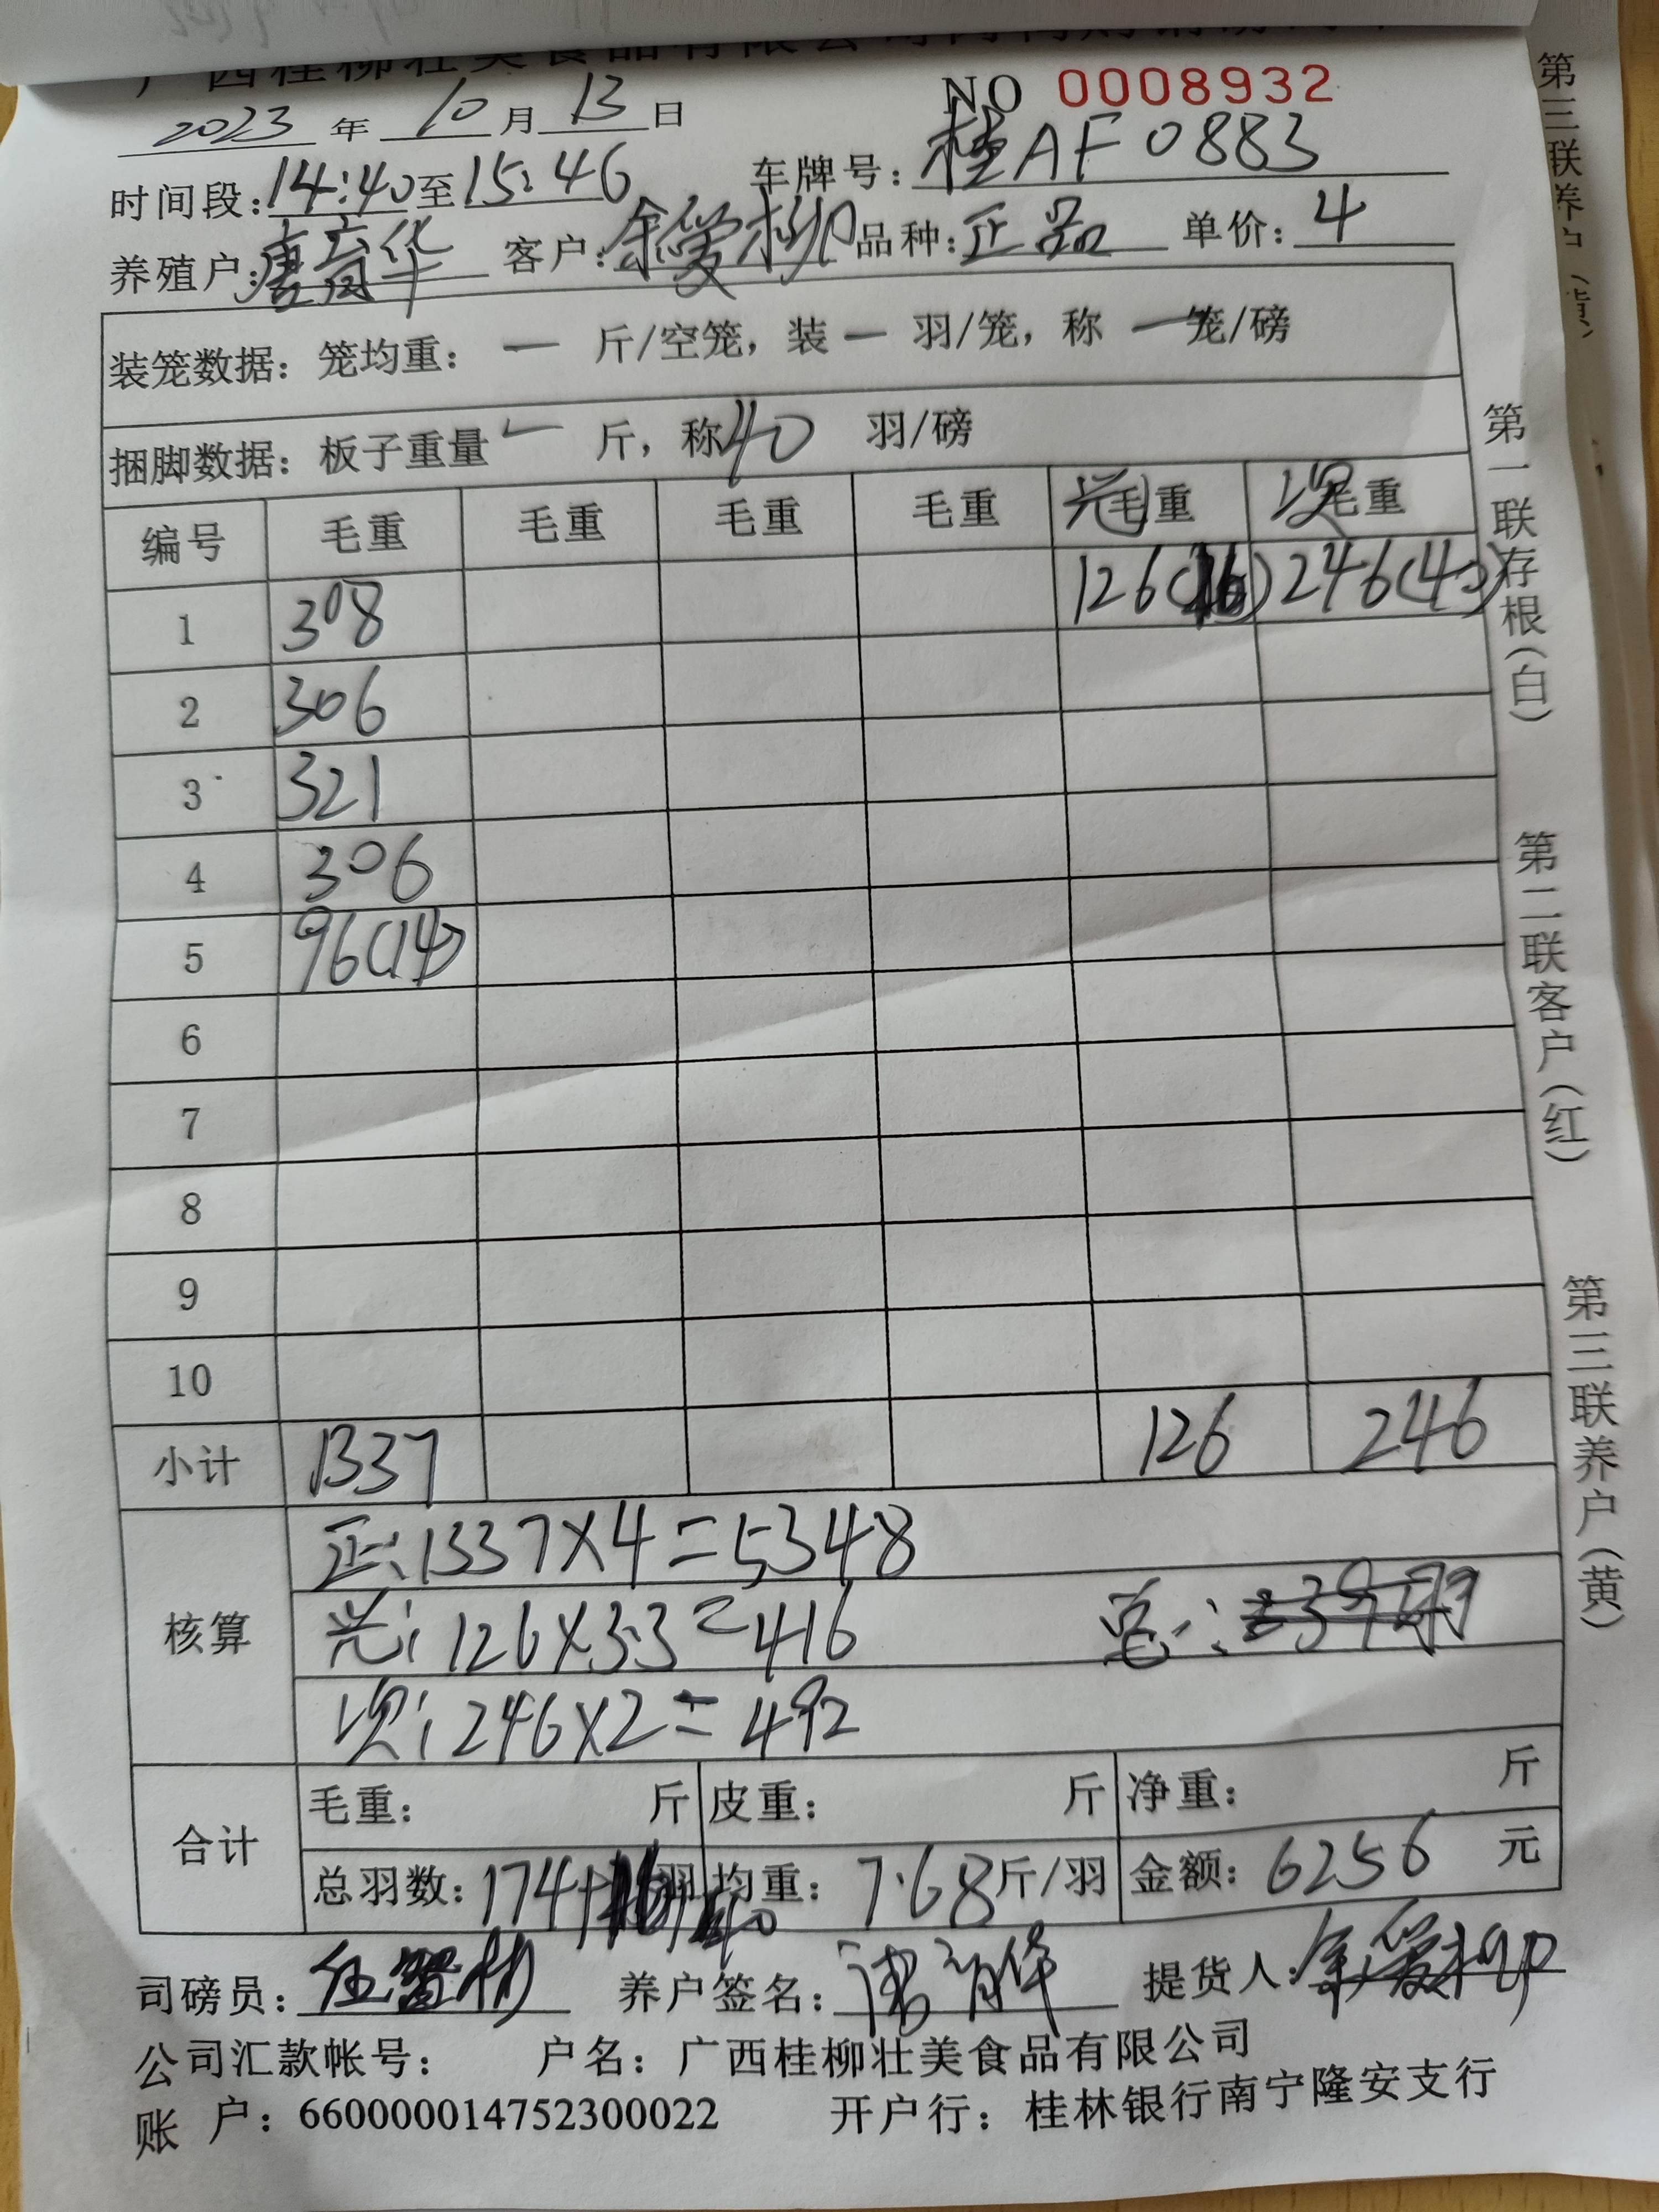 NO 0008932
2023 年 10 月 13 日
时间段:14:40至15:46 车牌号:桂AF0883
养殖户:唐育华 客户:余爱柳 品种:正品 单价:4
装笼数据:笼均重: 一 斤/空笼,装 一 羽/笼,称 一 笼/磅
捆脚数据:板子重量 一 斤,称 40 羽/磅
编号 毛重 毛重 毛重 毛重 光毛重 次毛重
1 308 126(16) 246(40)
2 306
3 321
4 306
5 96(14)
6
7
8
9
10
小计 1337 126 246
核算 正:1337×4=5348
光:126×3.3=416 总:
次:246×2=492
合计 毛重: 斤 皮重: 斤 净重: 斤
总羽数:174+16 羽 均重:7.68斤/羽 金额:6256 元
司磅员: 养户签名: 育华 提货人:余爱柳
公司汇款帐号: 户名:广西桂柳壮美食品有限公司
账 户:660000014752300022 开户行:桂林银行南宁隆安支行
第一联存根(白) 第二联客户(红) 第三联养户(黄)
第三联养户(黄)